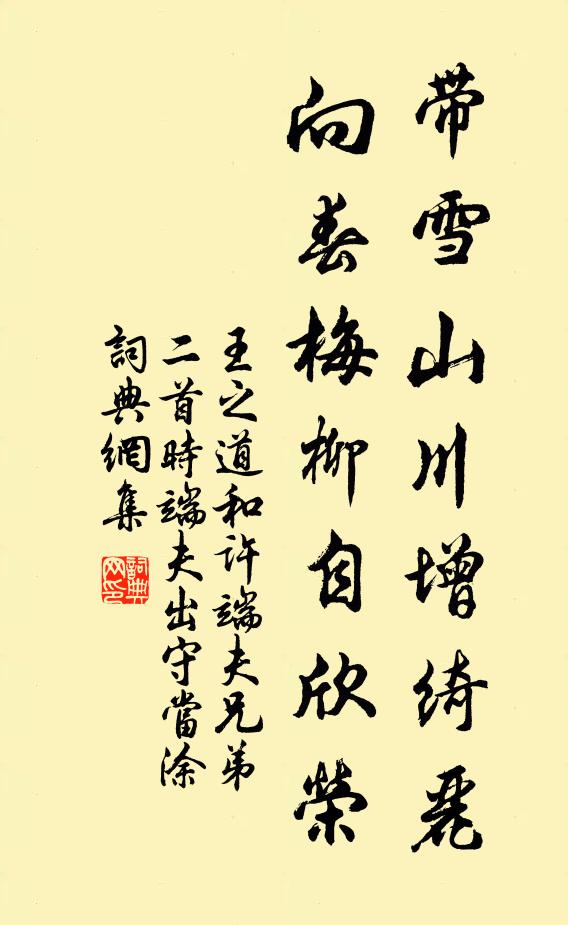 带雪山川增绮丽
向春梅柳自欣榮
王之道和许端夫兄弟
二首時端夫出守當涂
詞典網集
詞典網印